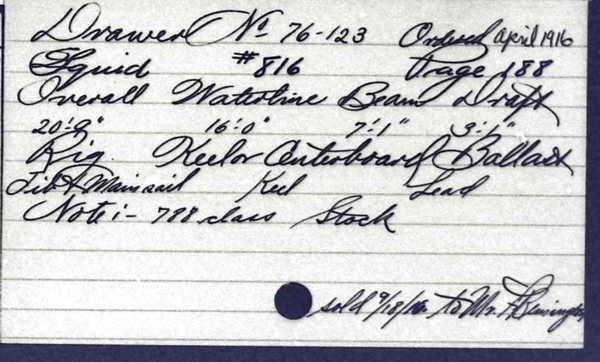 Drawer No 76-123 Ordered April 1916
Squid #816 Page 188
Overall Waterline Beam Draft
20'.9" 16'.0" 7'.1" 3'.1"
Rig. Keel or Centerboard Ballast
Jib & Mainsail Keel Lead
Note:- 788 class Stock
sold 9/18/16 to Mr.